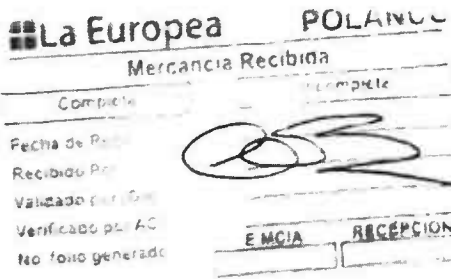 La Europea POLANCO
Mercancia Recibida
Completa
Fecha de
Recibido
Validado
Verificado por AC
No folio generado
E MCIA RECEPCION